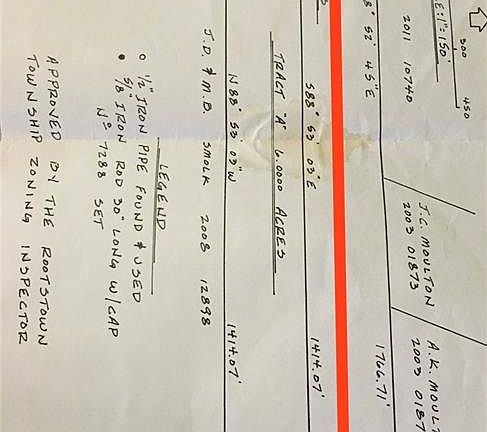 E: 1"=150'
300
450
2011 10740
8° 52' 45" E
J.C. MOULTON
2003 01873
A.K. MOULT
2003 0187
1766.71'
S88° 53' 03" E
1414.07'
TRACT "A" 6.0000 ACRES
N88° 53' 03" W
1414.07'
J.D. & M.B. SMOLK 2008 12898
LEGEND
1/2" IRON PIPE FOUND & USED
5/8" IRON ROD 30" LONG W/CAP
Nº 7288 SET
APPROVED BY THE ROOTSTOWN
TOWNSHIP ZONING INSPECTOR